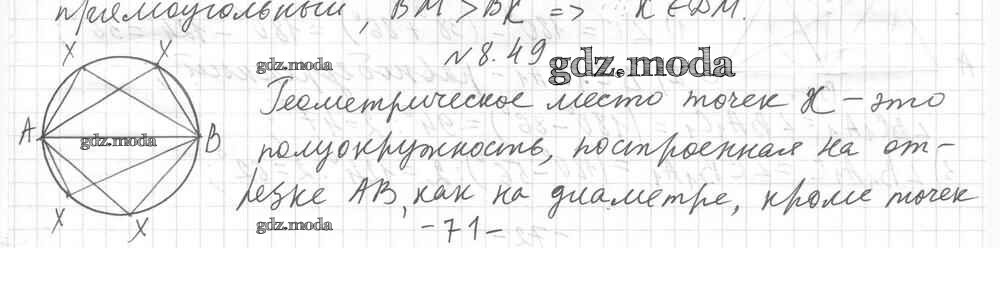 прямоугольный, BM > BK => K ∈ DM.
№ 8.49
gdz.moda
gdz.moda
X X
A B
gdz.moda
X X
Геометрическое место точек X – это
полуокружность, построенная на от-
резке AB, как на диаметре, кроме точек
gdz.moda
-71-